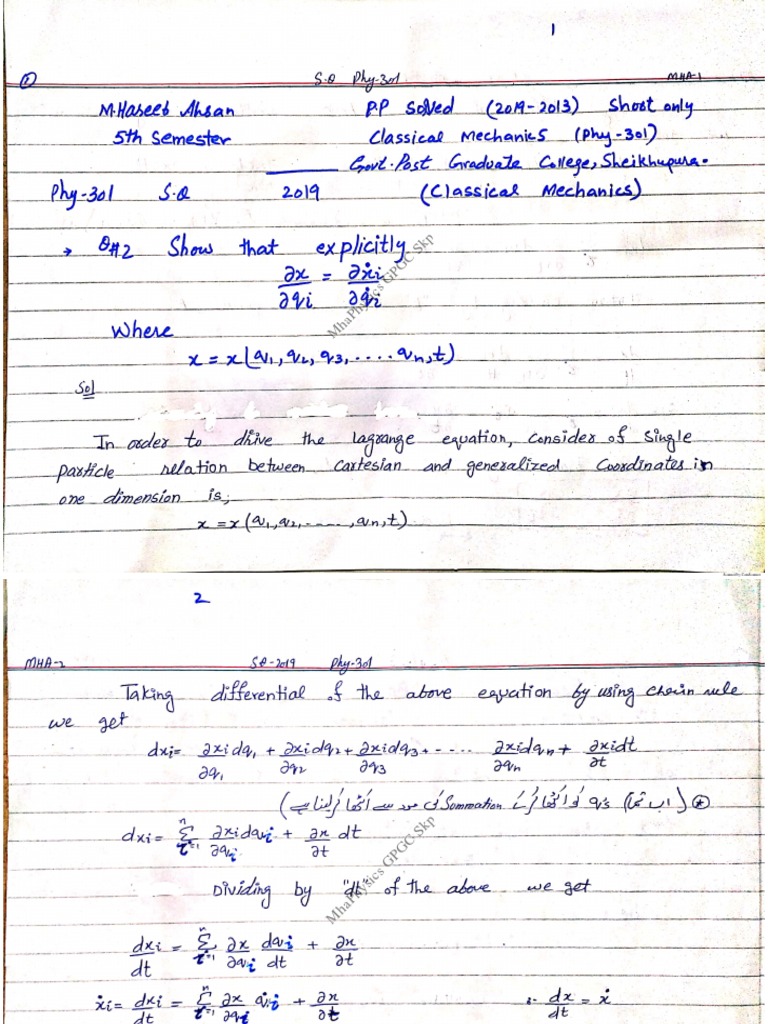 1
① S.Q Phy-301 MHA-1
M.Haseeb Ahsan P.P Solved (2019-2013) Short only
5th Semester Classical Mechanics (Phy-301)
Govt. Post Graduate College, Sheikhupura.
Phy-301 S.Q 2019 (Classical Mechanics)
→ Q#2 Show that explicitly
∂x/∂qi = ∂ẋi/∂q̇i
Where
x = x(q1, q2, q3, .... qn, t)
Sol
In order to drive the lagrange equation, consider of single
particle relation between cartesian and generalized coordinates in
one dimension is;
x = x(q1, q2, ......, qn, t)
MhaPhysics GPGC Skp
2
MHA-2 SQ-2019 Phy-301
Taking differential of the above equation by using chein rule
we get
dxi = ∂xi dq1/∂q1 + ∂xi dq2/∂q2 + ∂xi dq3/∂q3 + ---- ∂xi dqn/∂qn + ∂xi dt/∂t
⊛ (اب تمام q's کو اکٹھا کرکے Sommation کی مدد سے اکٹھا کرلینا ہے)
dxi = Σ(i=1 to n) ∂xi dqi/∂qi + ∂x/∂t dt
Dividing by "dt" of the above we get
dxi/dt = Σ(i=1 to n) ∂x/∂qi dqi/dt + ∂x/∂t
ẋi = dxi/dt = Σ(i=1 to n) ∂x/∂qi q̇i + ∂x/∂t ∴ dx/dt = ẋ
MhaPhysics GPGC Skp